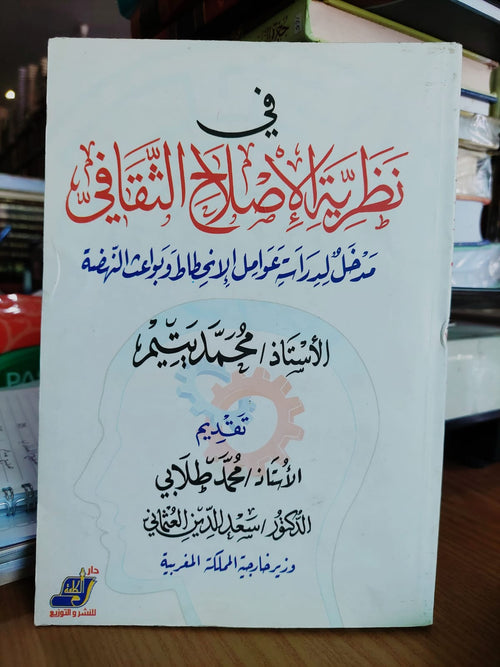 في
نَظَرِيَّةِ الإِصْلَاحِ الثَّقَافِيِّ
مَدْخَلٌ لِدِرَاسَةِ عَوَامِلِ الإِنْحِطَاطِ وَبَوَاعِثِ النَّهْضَة
الأُسْتَاذ / مُحَمَّد يَتِيْم
تَقْدِيم
الأُسْتَاذ / مُحَمَّد طَلَّابِي
الدُّكْتُور / سَعْدِ الدِّين العُثْمَاني
وزير خارجية المملكة المغربية
دار
الكلمة
للنشر والتوزيع
PA